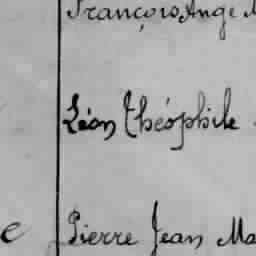 François Ange
Léon Théophile
e Pierre Jean Ma